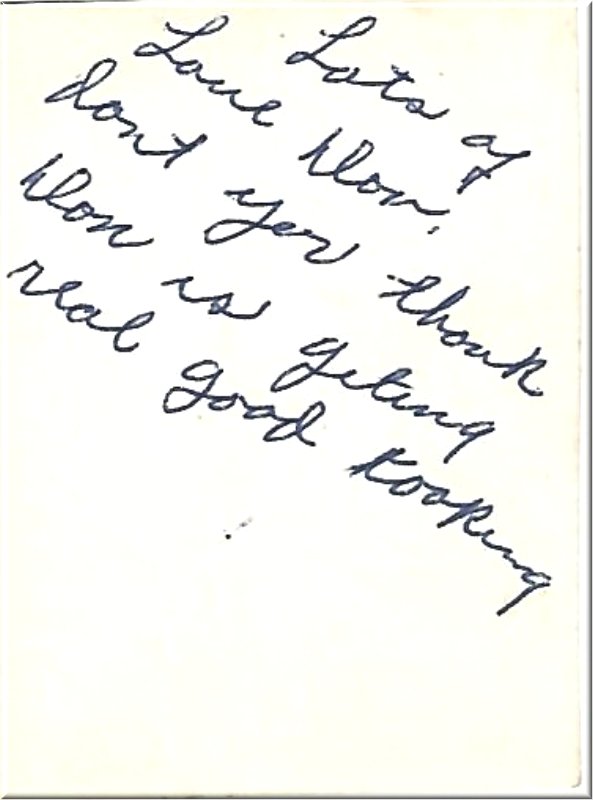 Lots of
Love Don,
dont yer think
Don is geting
real good looking